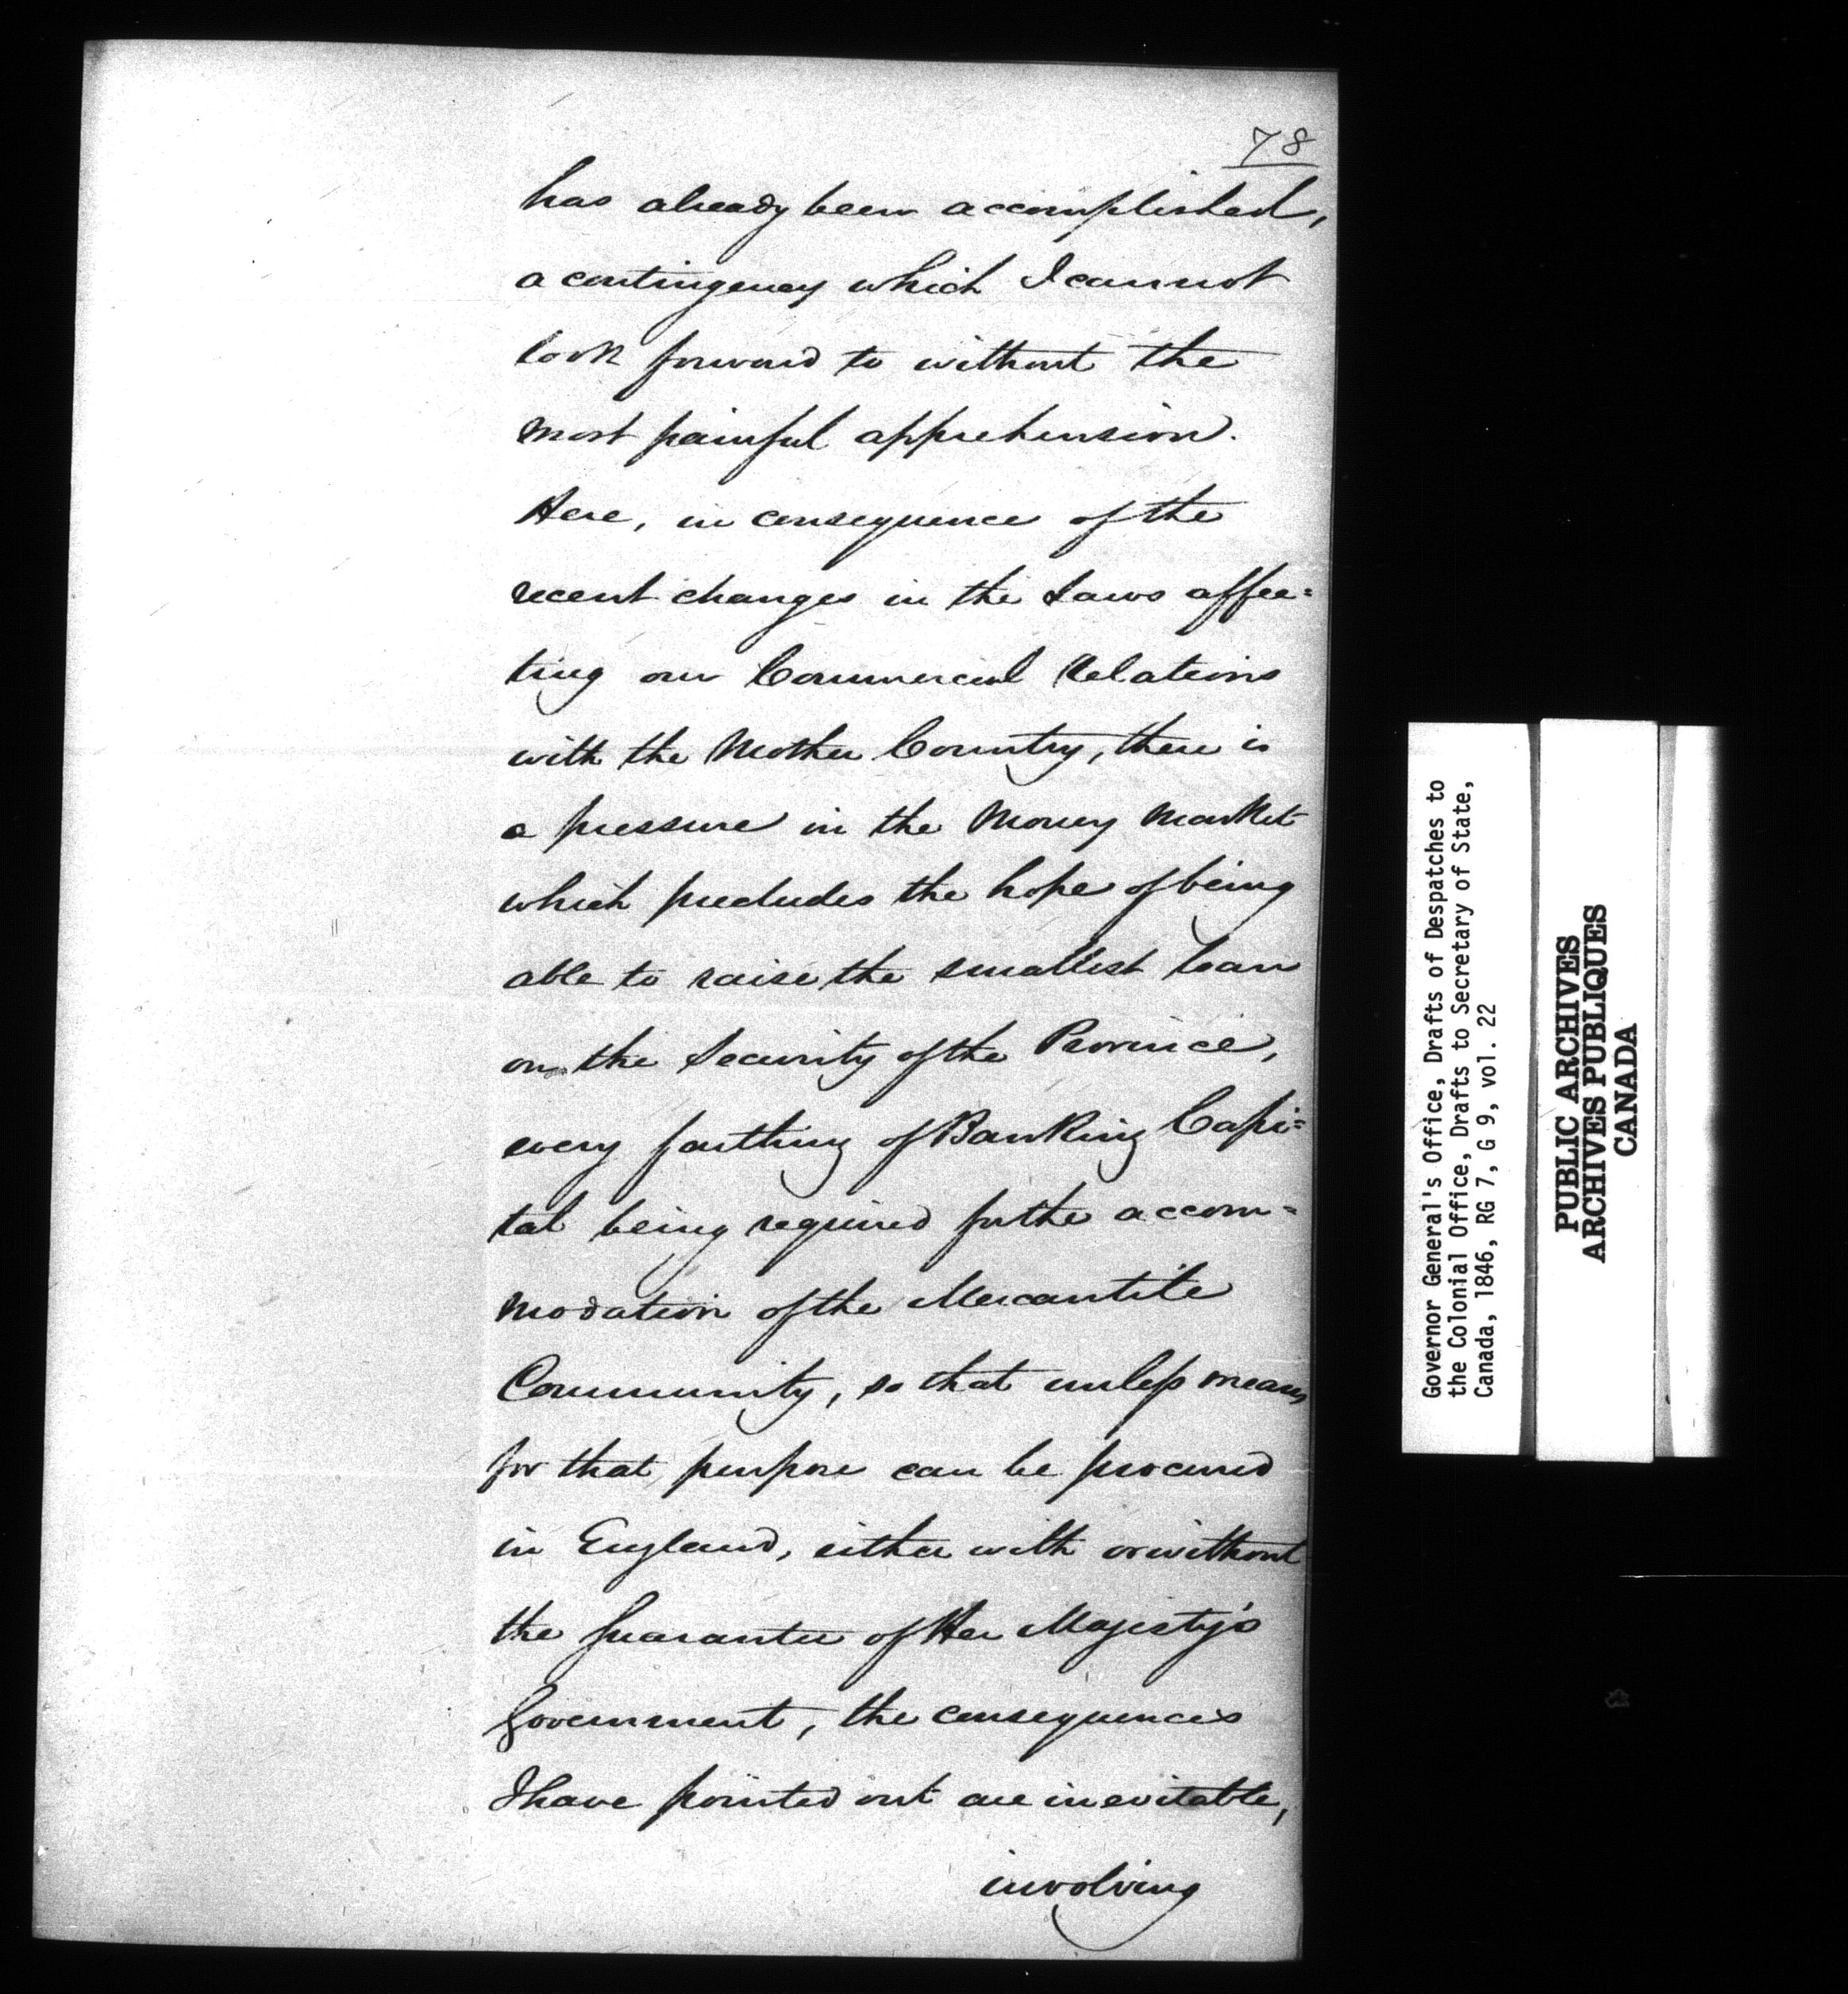 78
has already been accomplished,
a contingency which I cannot
look forward to without the
most painful apprehension.
Here, in consequence of the
recent changes in the Laws affec=
ting our Commercial Relations
with the Mother Country, there is
a pressure in the Money Market
which precludes the hope of being
able to raise the smallest loan
on the Security of the Province,
every farthing of Banking Capi=
tal being required for the accom=
modation of the Mercantile
Community, so that unless means
for that purpose can be procured
in England, either with or without
the guarantee of Her Majesty's
Government, the consequences
I have pointed out are inevitable,
involving
Governor General's Office, Drafts of Despatches to
the Colonial Office, Drafts to Secretary of State,
Canada, 1846, RG 7, G 9, vol. 22
PUBLIC ARCHIVES
ARCHIVES PUBLIQUES
CANADA